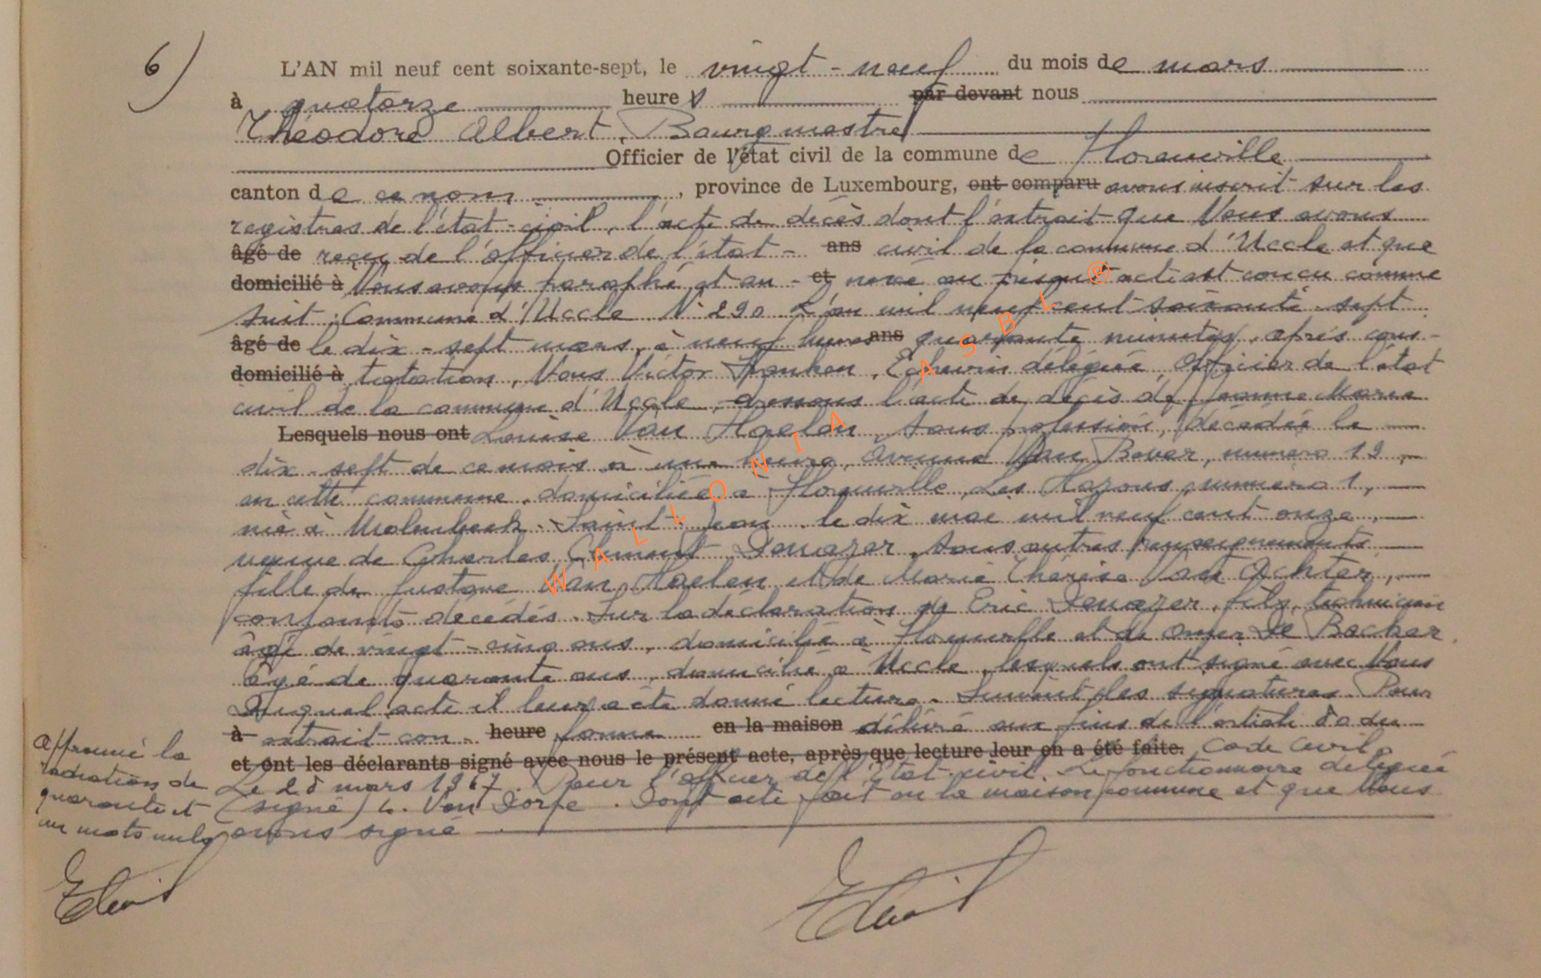 6)
L'AN mil neuf cent soixante-sept, le vingt-neuf du mois de mars
à quatorze heures par devant nous
Théodore Albert, Bourgmestre
Officier de l'état civil de la commune de Florenville
canton de ce nom, province de Luxembourg, ont comparu avons inscrit sur les
registres de l'état-civil, l'acte de décès dont l'extrait que Nous avons
âgé de reçu de l'officier de l'état- ans civil de la commune d'Uccle et que
domicilié à Nous avons paraphé et an- et nexé au acte est conçu comme
suit: Commune d'Uccle N° 290 L'an mil neuf cent soixante-sept
âgé de le dix-sept mars, à neuf heures ans quarante minutes, après cons-
domicilié à tatation, Nous Victor Echevin délégué, Officier de l'état
civil de la commune d'Uccle, dressons l'acte de décès de Jeanne Marie
Lesquels nous ont Louise Van Haelen, sans profession, décédée le
dix-sept de ce mois à une heure, Avenue Van Bever, numéro 19,
en cette commune, domiciliée à Florenville, Les Hayons, numéro 1,
née à Molenbeek-Saint-Jean, le dix mai mil neuf cent onze,
veuve de Charles Clément Denayer, sans autres renseignements,
fille de Gustave Van Haelen et de Marie Thérèse Van Achter,
conjoints décédés. Sur la déclaration de Eric Denayer, fils, technicien
âgé de vingt-cinq ans, domicilié à Florenville et de Omer De Backer
âgé de quarante ans, domicilié à Uccle, lesquels ont signé avec Nous
Duquel acte il leur a été donné lecture. Suivent les signatures. Pour
à extrait con- heure forme en la maison délivré aux fins de l'article 80 du
et ont les déclarants signé avec nous le présent acte, après que lecture leur en a été faite. Code Civil.
Le 28 mars 1967. Pour l'officier de l'Etat-civil. Le fonctionnaire délégué
(signé) L. Van Dorpe. Dont acte fait en la maison commune et que Nous
avons signé
approuvé la
radiation de
quarante et
un mots nuls
WALLONIA ASBL ®